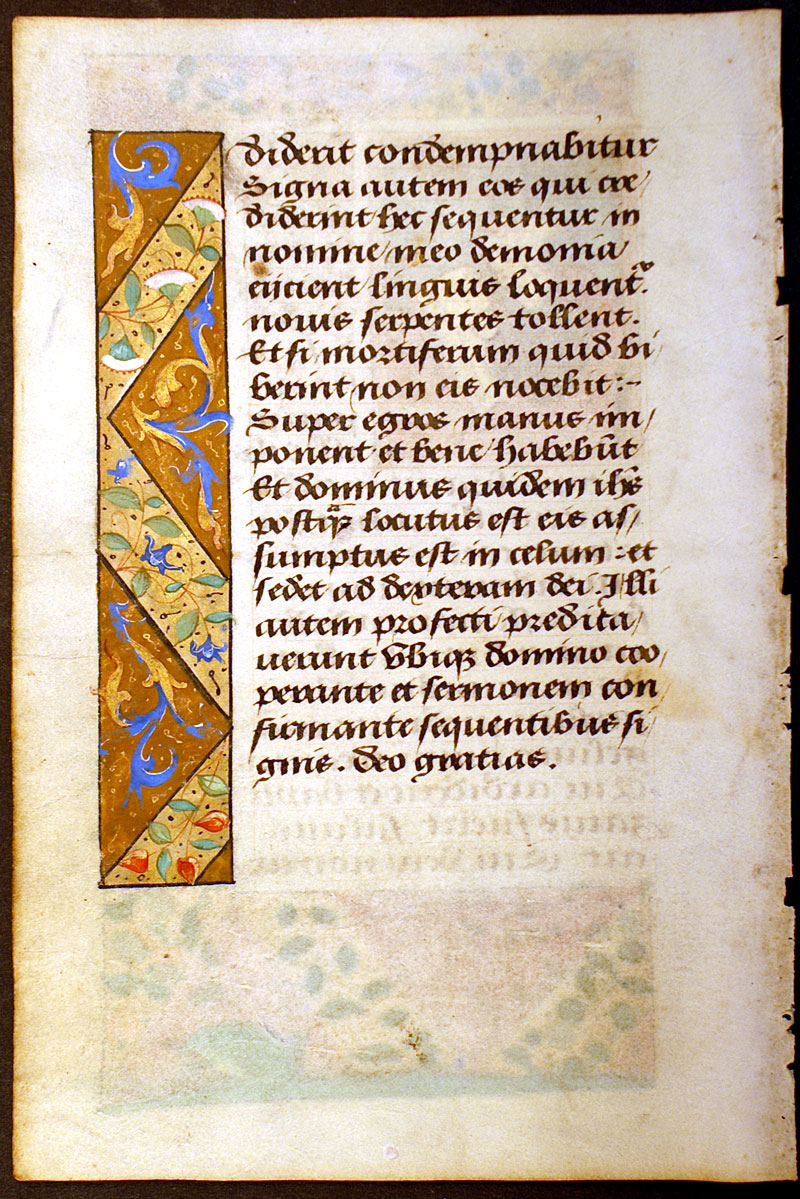 diderit condempnabitur
Signa autem eos qui cre/
diderint hec sequentur in
nomine meo demonia
eiicient linguis loquent᷑.
nouis serpentes tollent.
Et si mortiferum quid bi/
berint non eis nocebit:~
Super egros manus im/
ponent et bene habebūt
Et dominus quidem ihs̄
postꝙ̄ locutus est eis as/
sumptus est in celum : et
sedet ad dexteram dei. Illi
autem profecti predica/
uerunt vbiqꝫ domino coo/
perante et sermonem con
firmante sequentibus si/
gnis. deo gratias.